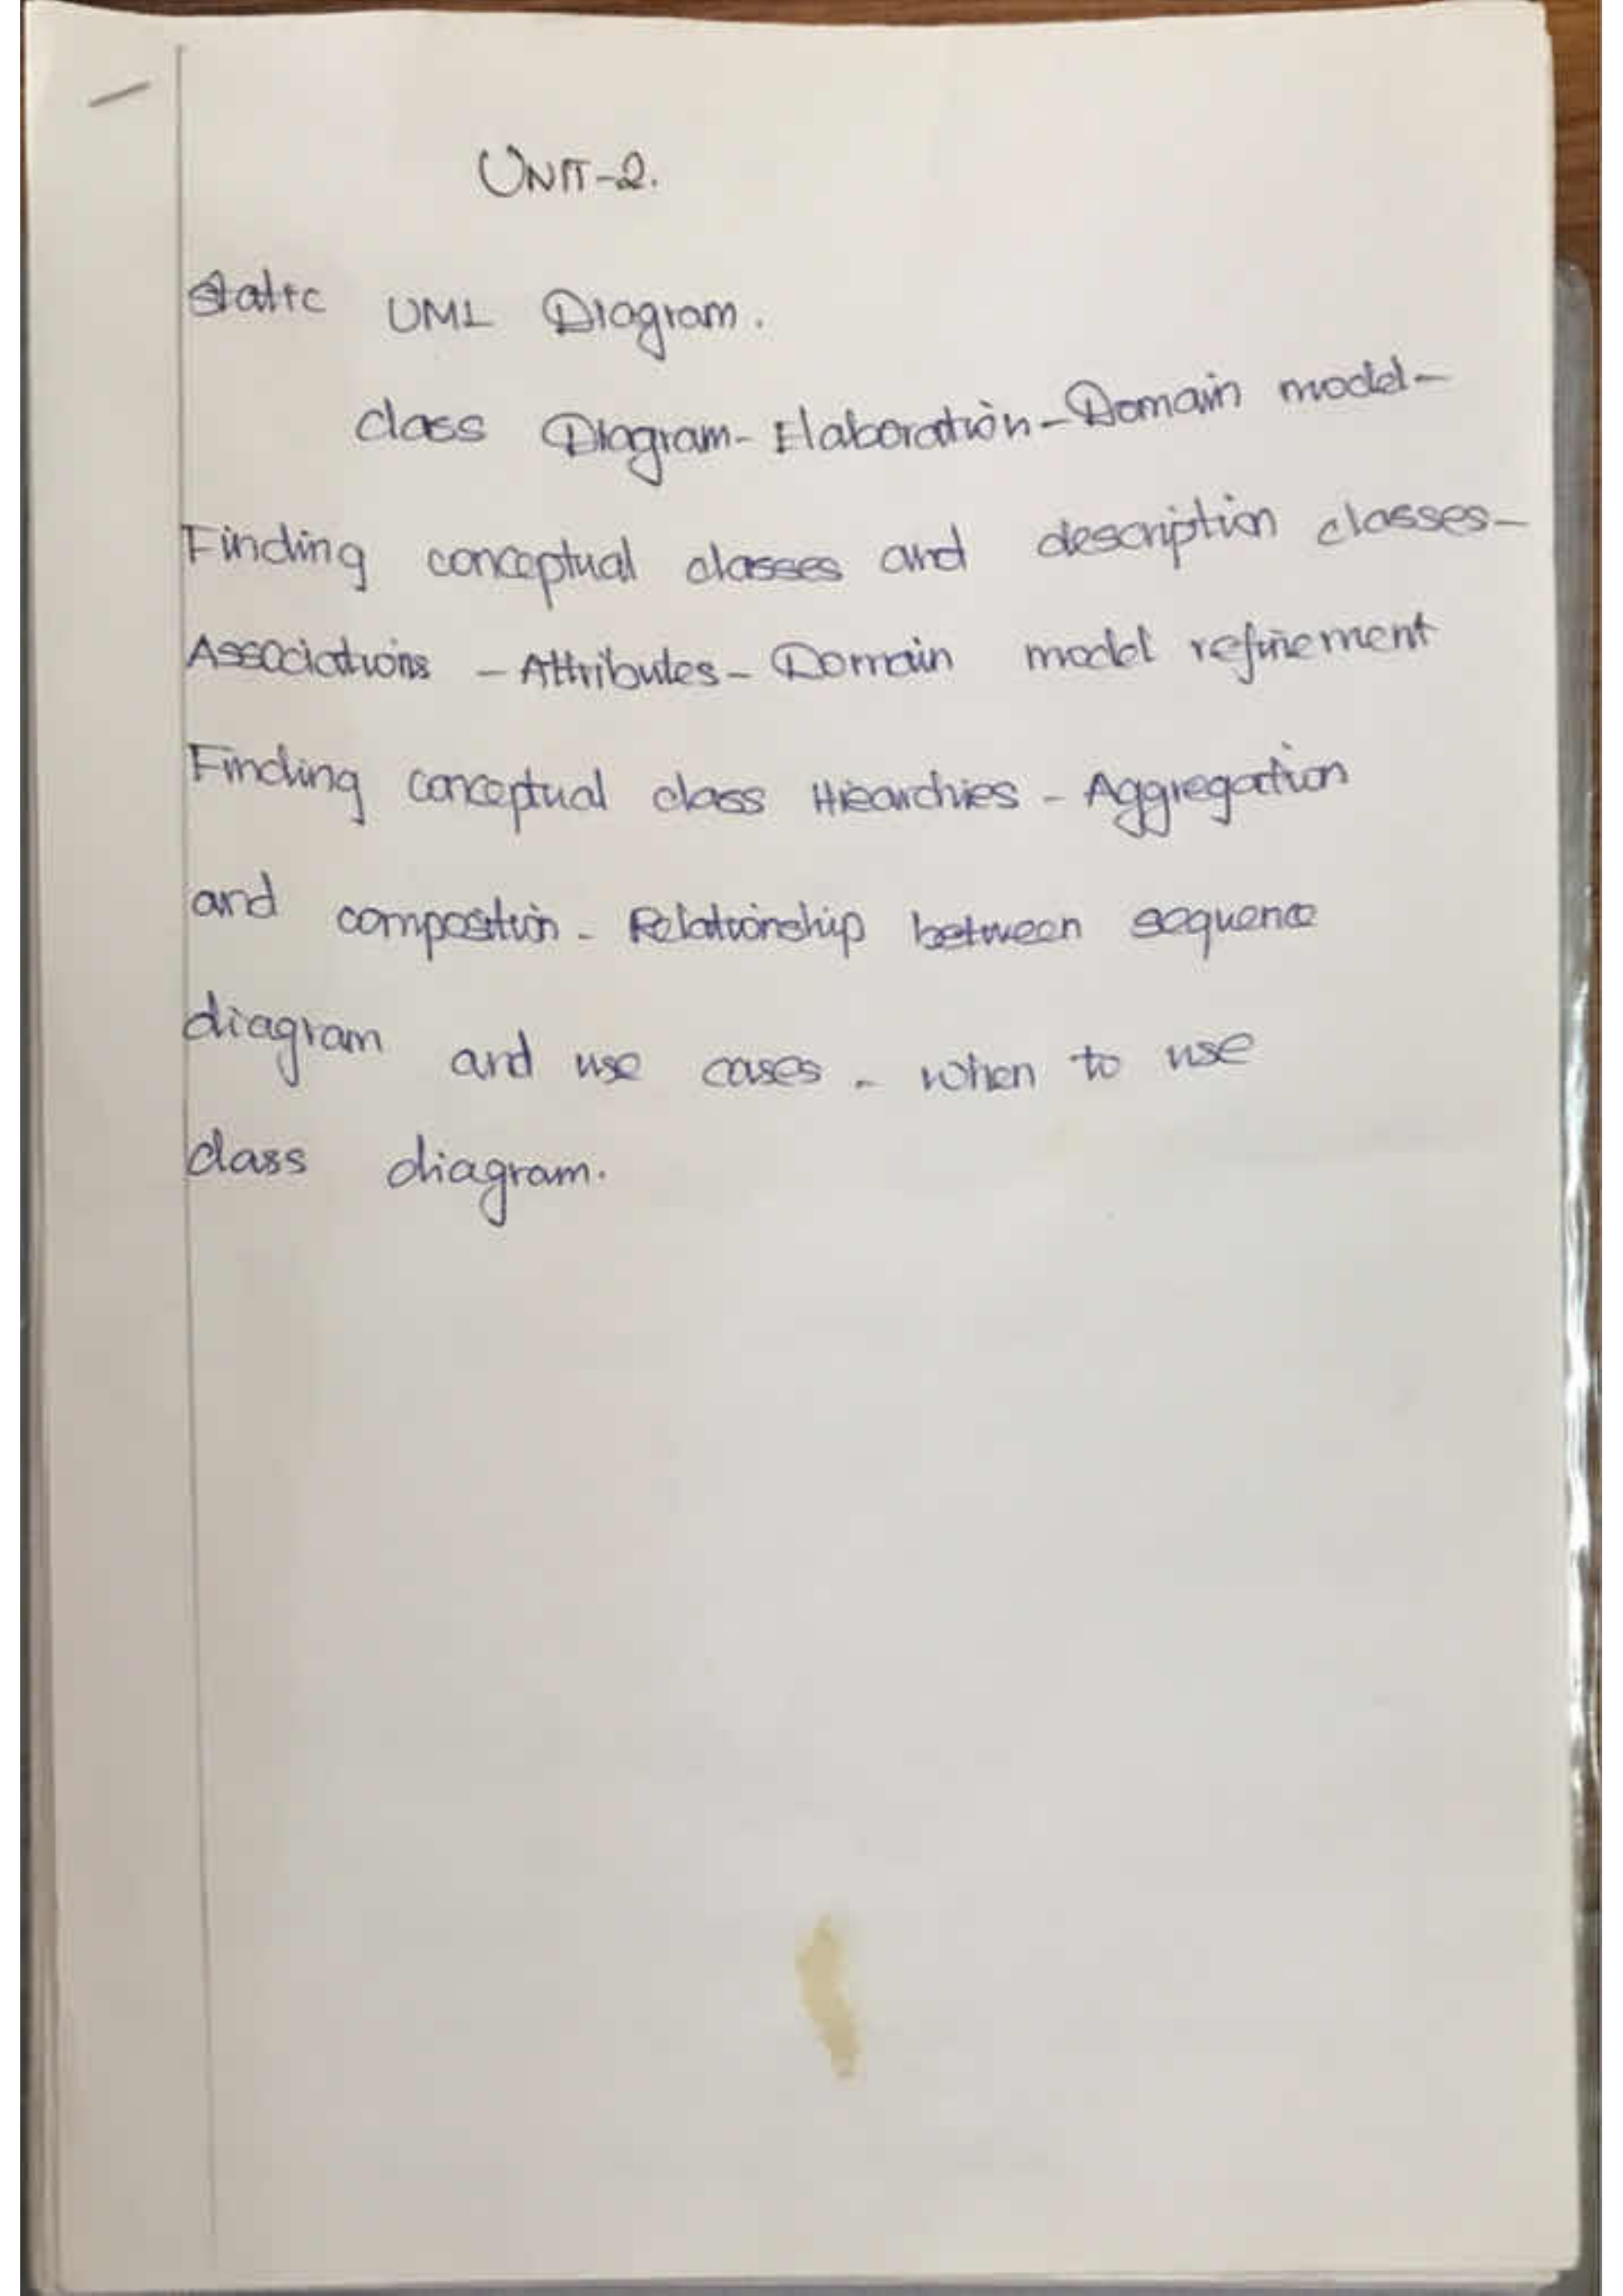 UNIT-2.
static UML Diagram.
class Diagram- Elaboration-Domain model-
Finding conceptual classes and description classes-
Associations - Attributes- Domain model refinement
Finding conceptual class Hiearchies - Aggregation
and composition - Relationship between sequence
diagram and use cases - when to use
class diagram.